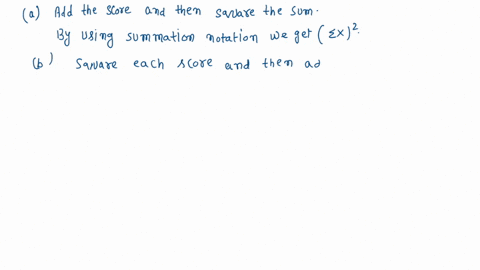 (a) Add the score and then square the sum.
By using summation notation we get (ΣX)².
(b) Square each score and then ad